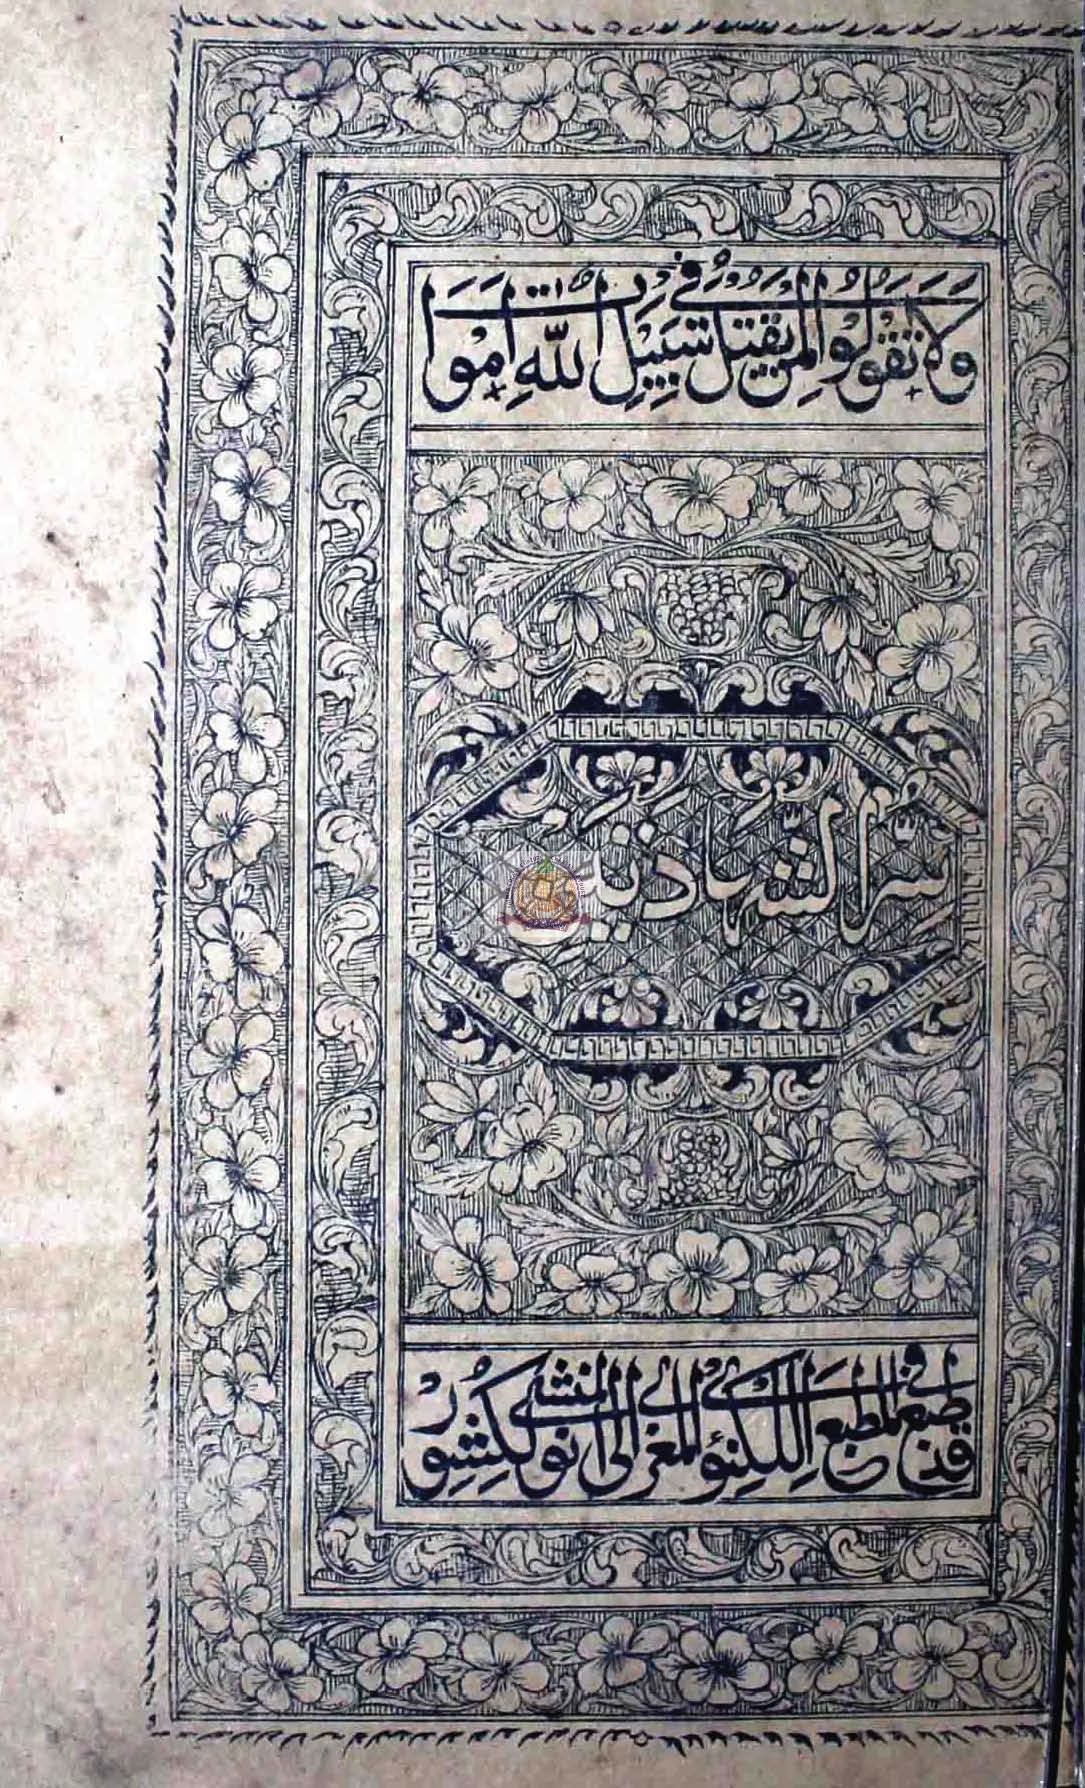 وَلَا تَقُوْلُوْا لِمَنْ يُّقْتَلُ فِيْ سَبِيْلِ اللّٰهِ اَمْوَاتٌ
سِرُّ الشَّهَادَتَيْنِ
قد طبع في المطبع اللكنوي المعزى الى المنشي نولكشور